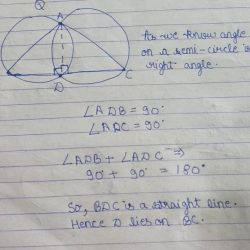 Q
A
As we know angle
on a semi-circle is
right angle.
C
D
∠ADB = 90°
∠ADC = 90°
∠ADB + ∠ADC ⇒
90° + 90° = 180°
So, BDC is a straight line.
Hence D lies on BC.